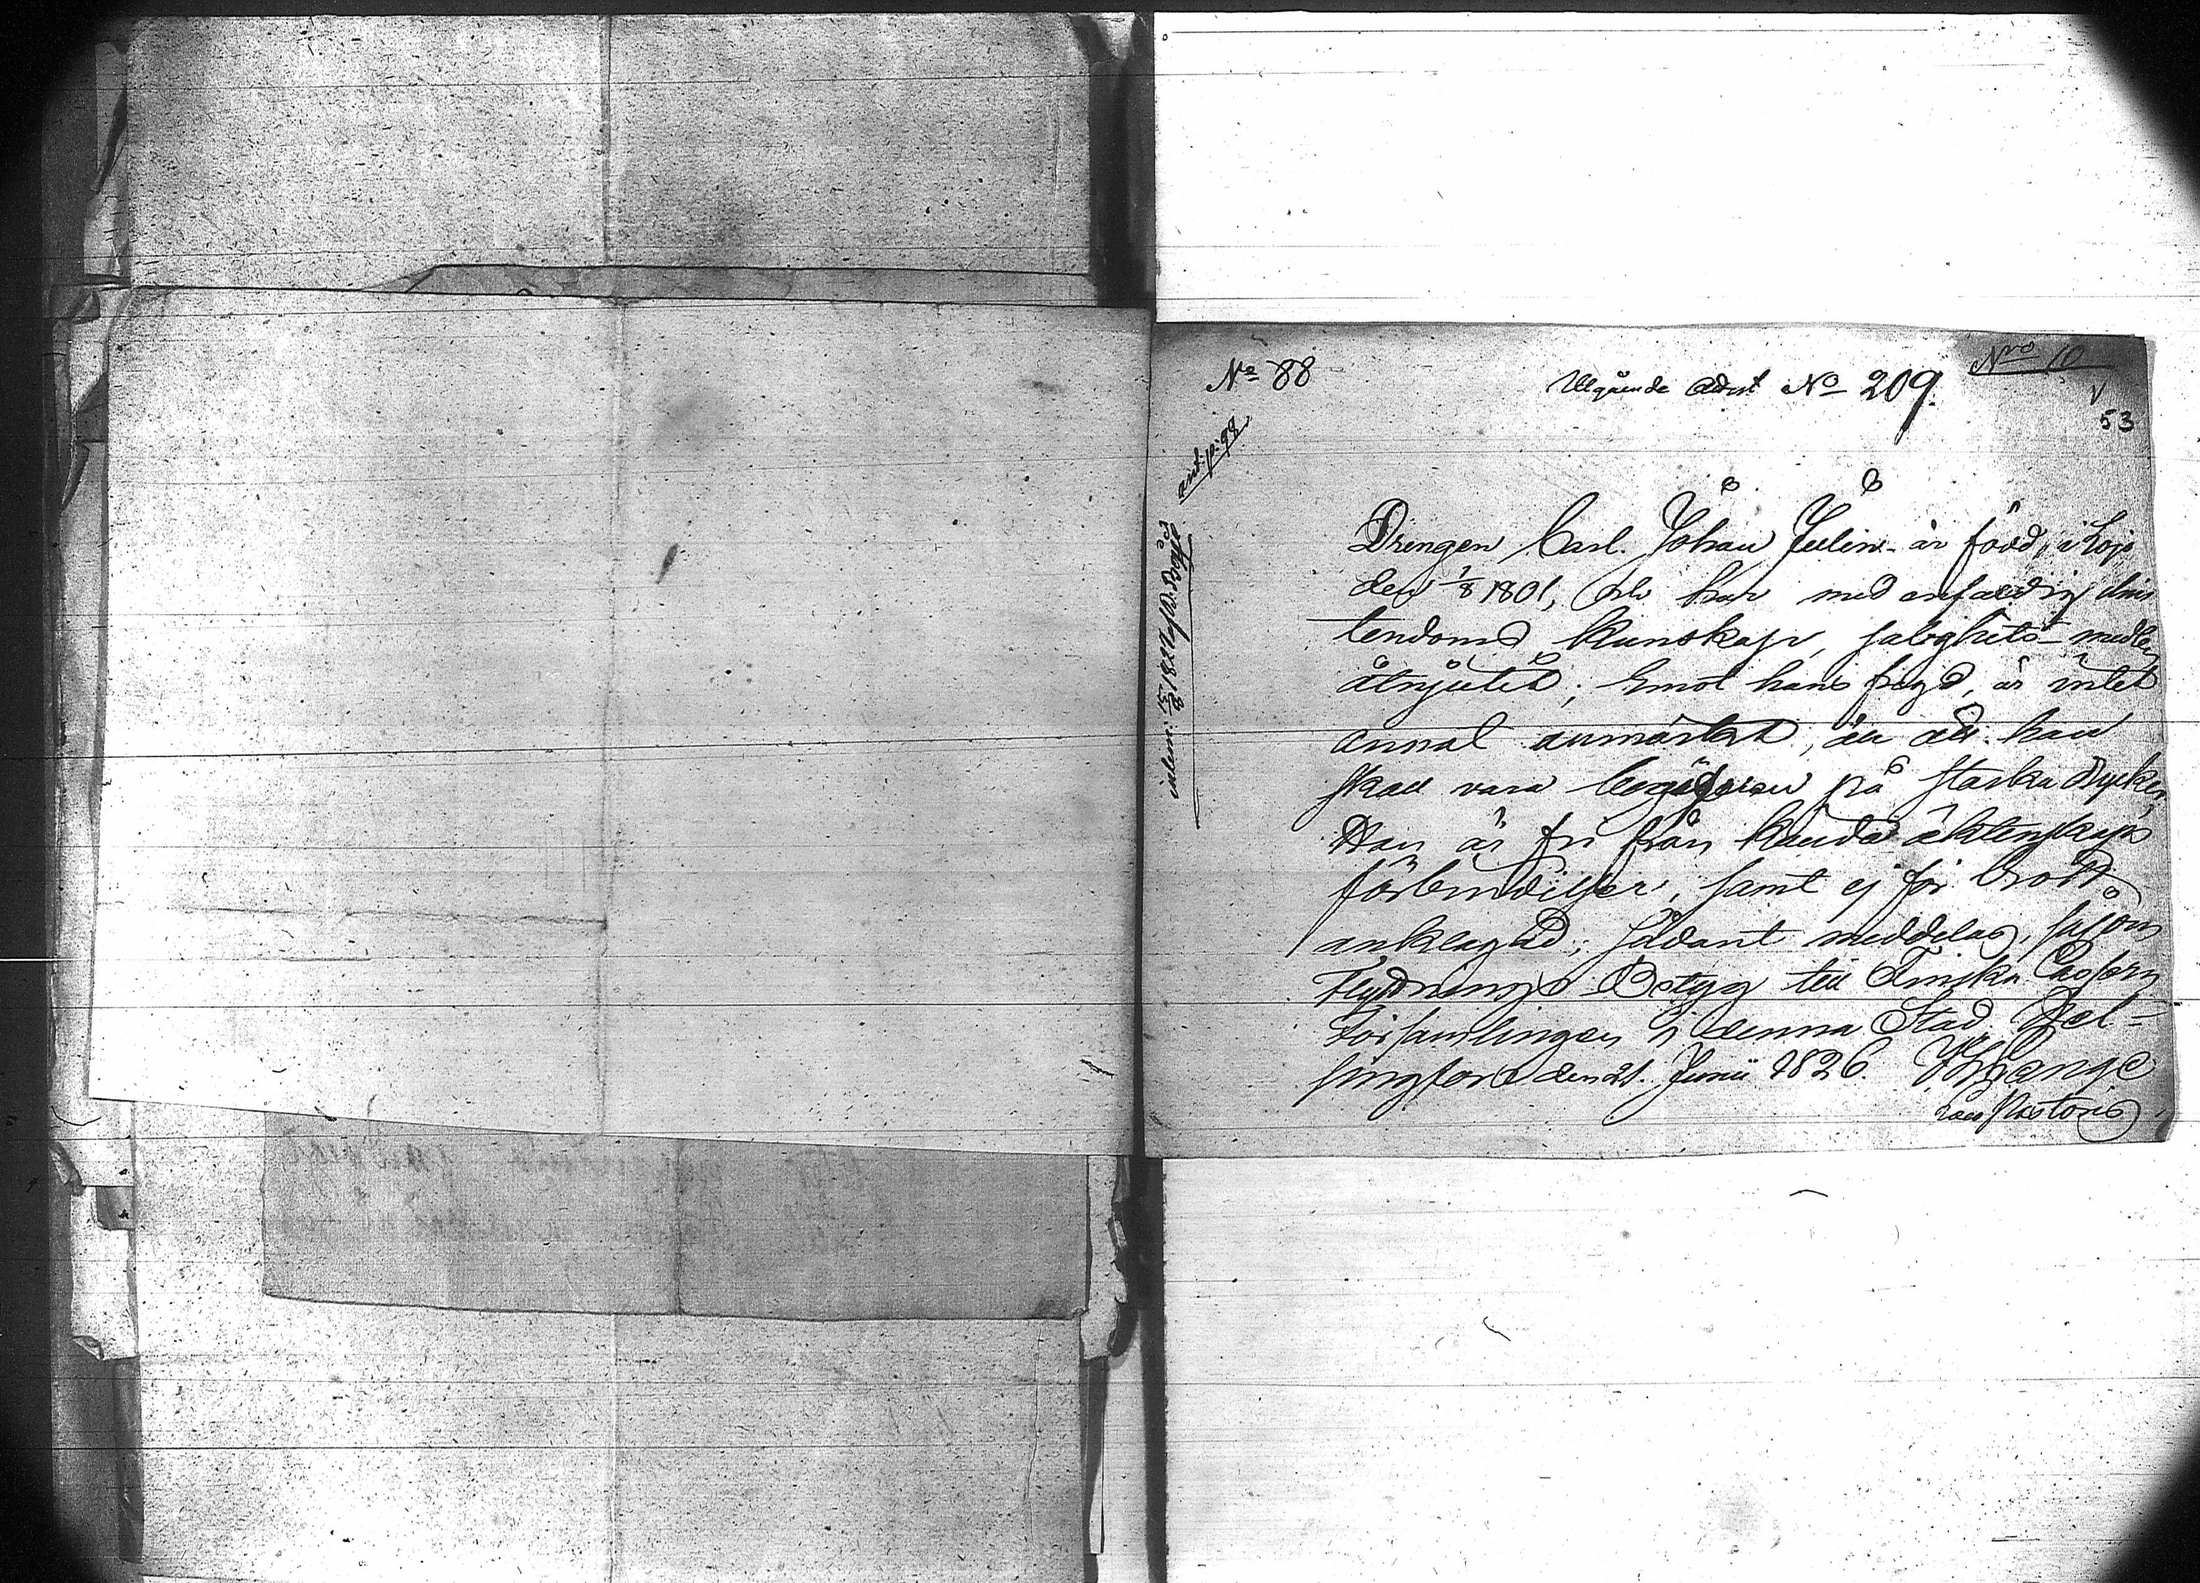 No 88
Utgående Attest No 209.
Nro 10
53
ant. p: 98
inlem: 1827
Drengen Carl Johan Julin är född i Lojo
den 1/8 1801, och har med enfaldig Chris
tendoms Kunskap, salighets-medlen
åtnjutit; Emot hans frejd, är intet
annat anmärkt, än att han
skall vara begifven på starka drycker,
Han är fri från kända äktenskaps
förbindelser, samt ej för brott
anklagad; sådant meddelas, såsom
Flyttnings Betyg till Finska Pastors
Församlingen i denna Stad. Hel-
singfors den 21. Junii 1826.
Pastoris